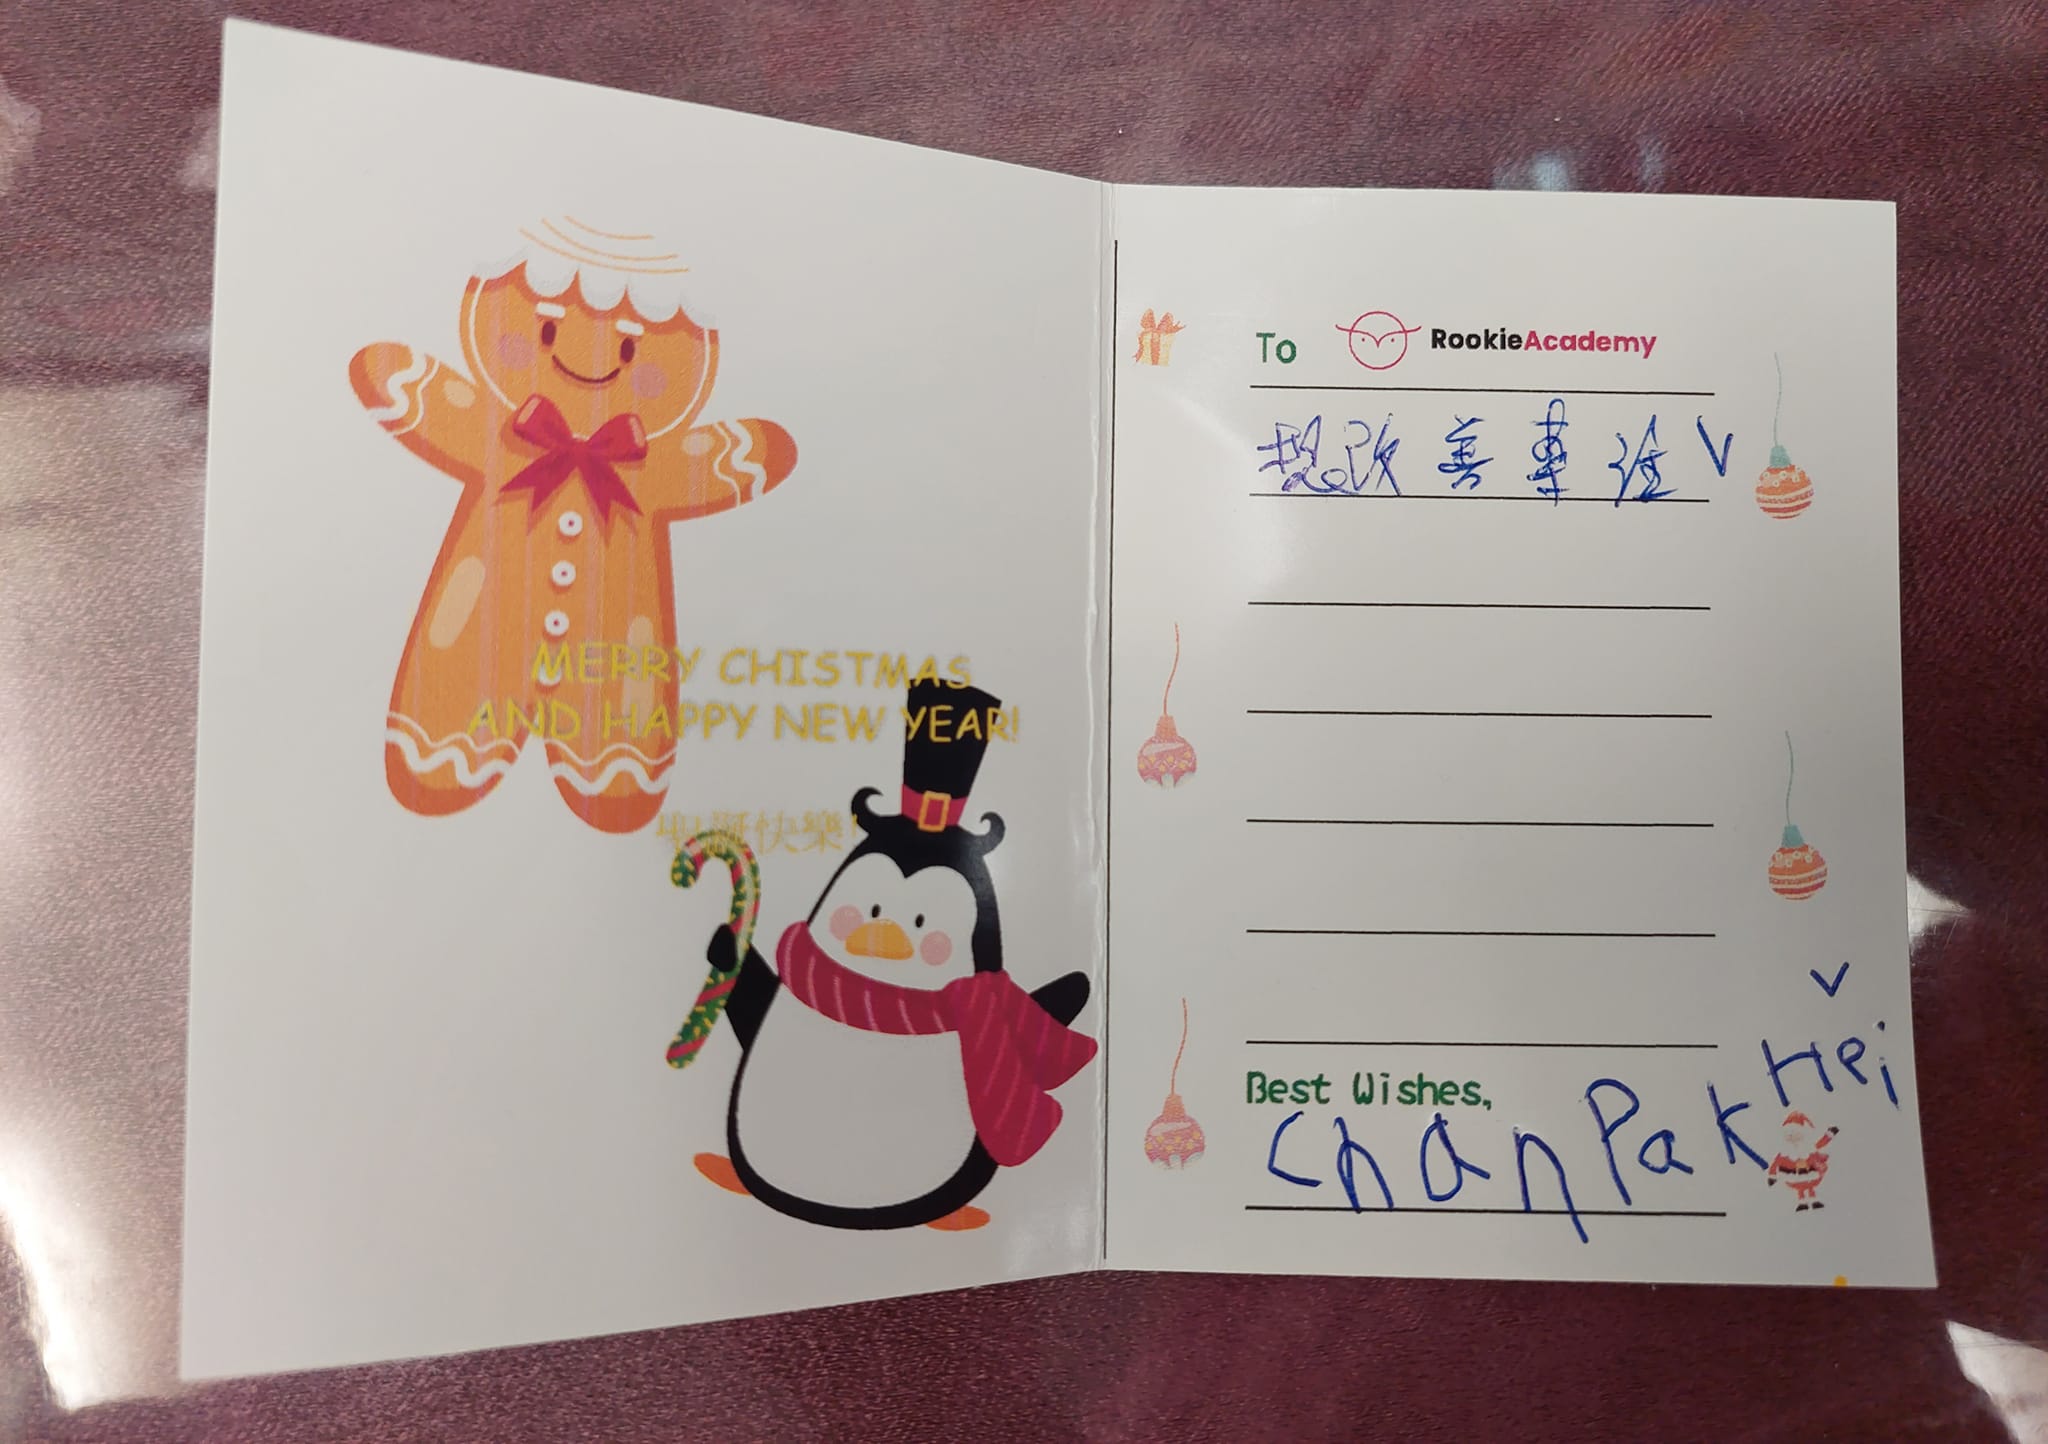 MERRY CHISTMAS
AND HAPPY NEW YEAR!
聖誕快樂!
To RookieAcademy
想改善專注 V
Best Wishes,
V
Chan Pak Hei